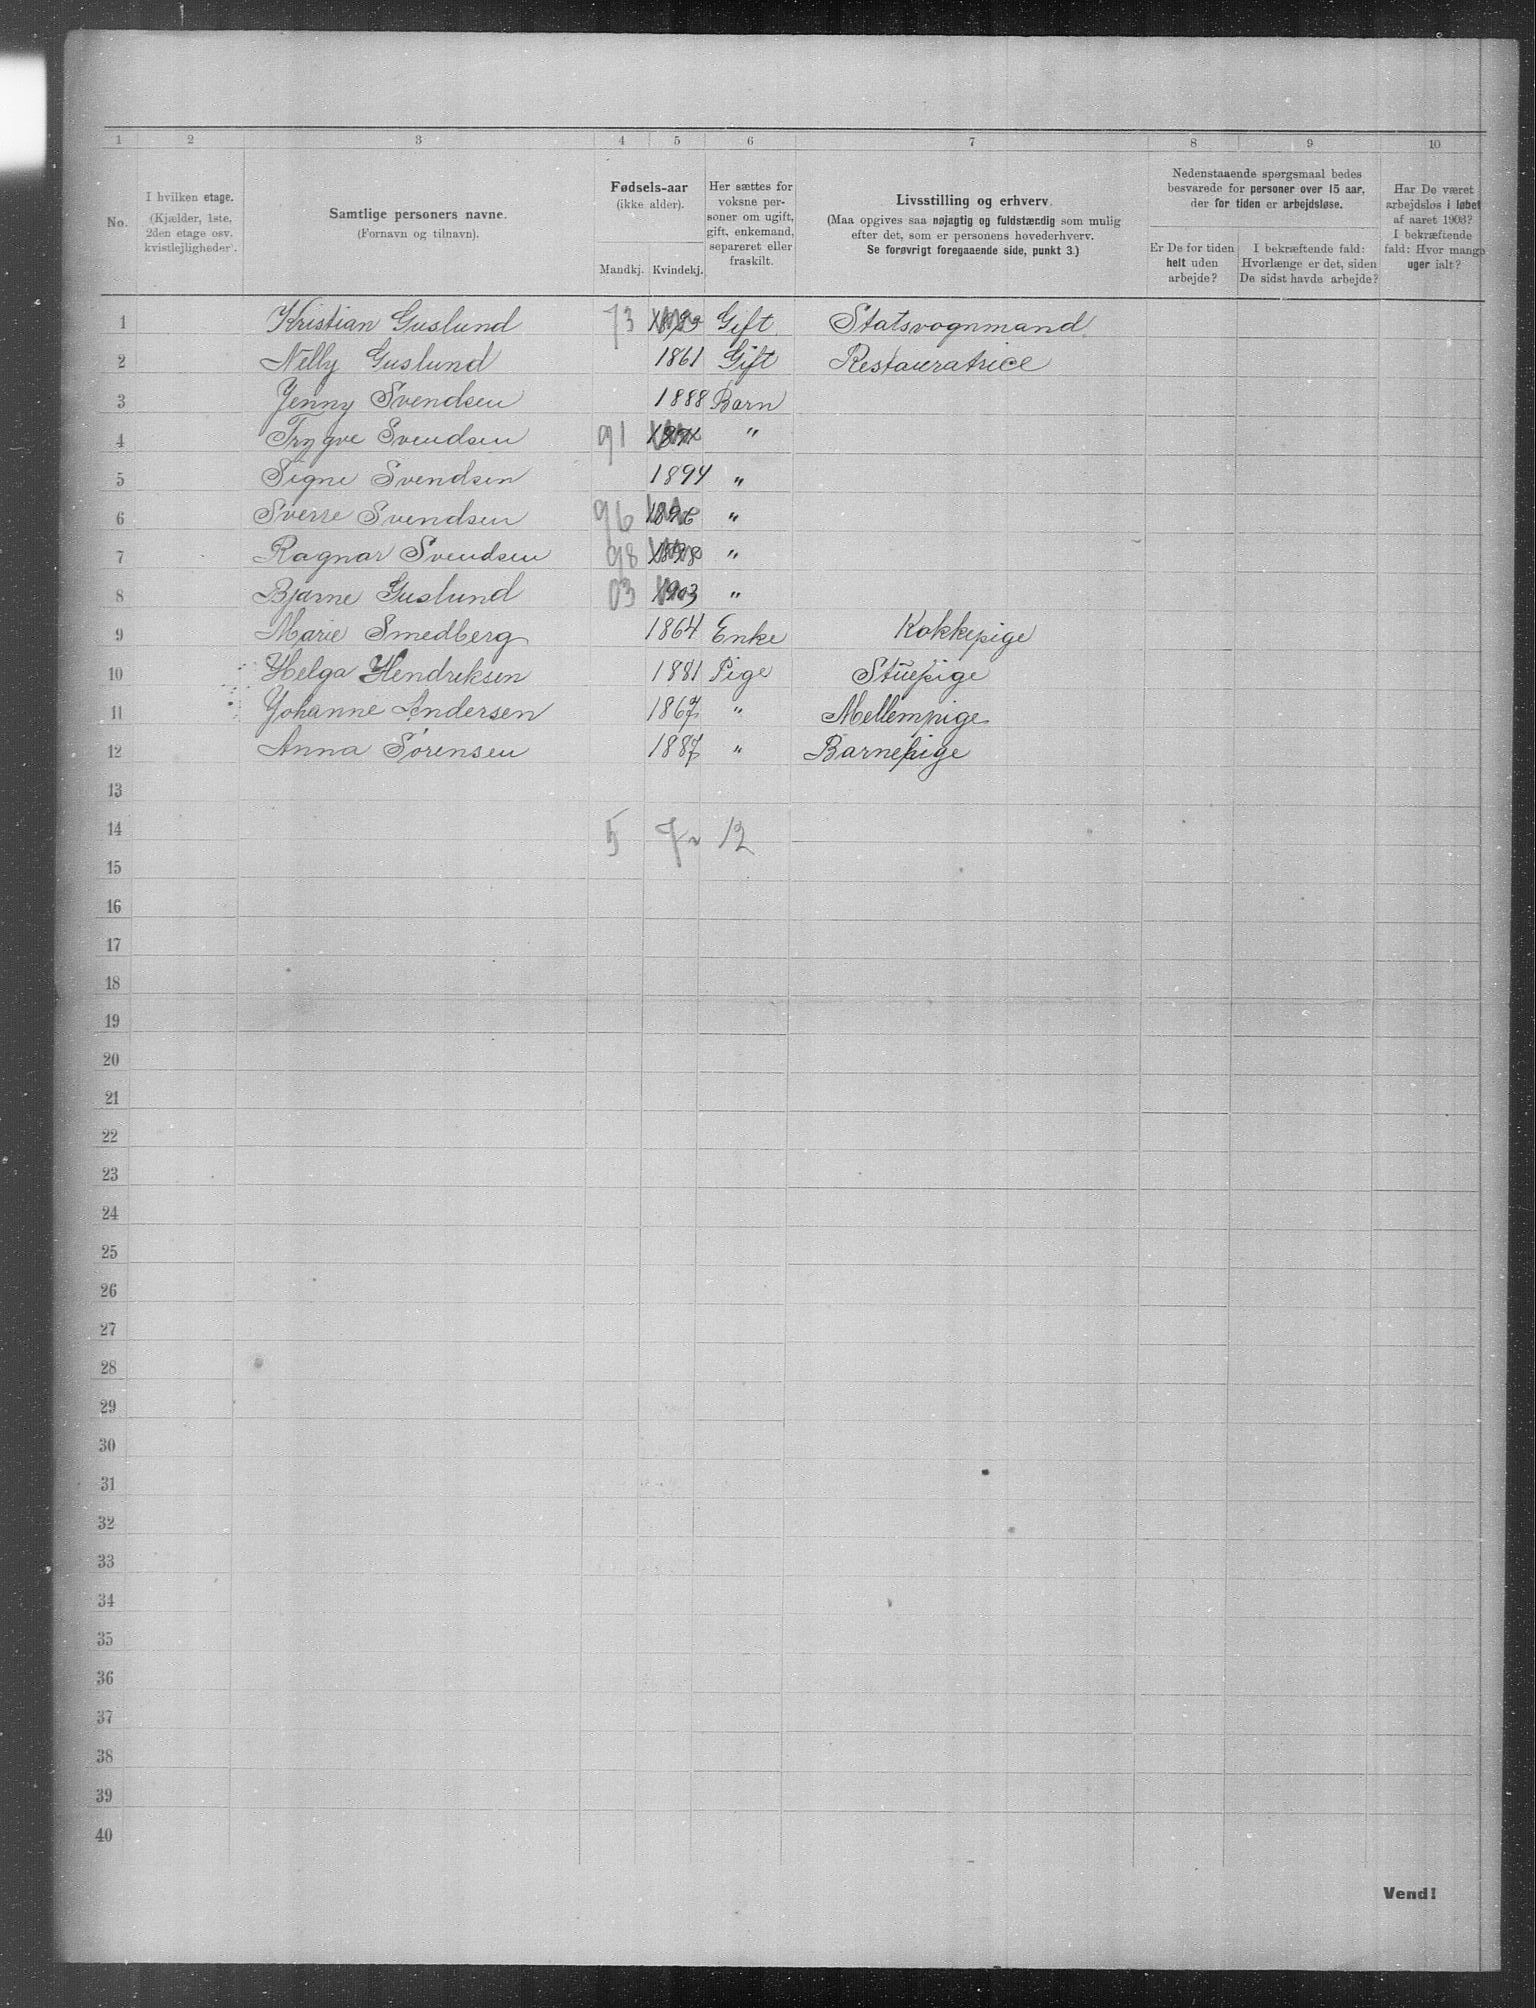 1 2 3 4 5 6 7 8 9 10
No.
I hvilken etage.
(Kjælder, 1ste,
2den etage osv.
kvistlejligheder).
Samtlige personers navne.
(Fornavn og tilnavn).
Fødsels-aar
(ikke alder).
Mandkj. Kvindekj.
Her sættes for
voksne per-
soner om ugift,
gift, enkemand,
separeret eller
fraskilt.
Livsstilling og erhverv.
(Maa opgives saa nøjagtig og fuldstændig som mulig
efter det, som er personens hovederhverv.
Se forøvrigt foregaaende side, punkt 3.)
Nedenstaaende spørgsmaal bedes
besvarede for personer over 15 aar,
der for tiden er arbejdsløse.
Er De for tiden
helt uden
arbejde?
I bekræftende fald:
Hvorlænge er det, siden
De sidst havde arbejde?
Har De været
arbejdsløs i løbet
af aaret 1903?
I bekræftende
fald: Hvor mange
uger ialt?
1 Kristian Guslund 73 Gift Statsvognmand
2 Nelly Guslund 1861 Gift Restauratrice
3 Jenny Svendsen 1888 Barn
4 Trygve Svendsen 91 1891 "
5 Signe Svendsen 1894 "
6 Sverre Svendsen 96 1896 "
7 Ragnar Svendsen 98 1898 "
8 Bjarne Guslund 03 1903 "
9 Marie Smedberg 1864 Enke Kokkepige
10 Helga Hendriksen 1881 Pige Stuepige
11 Johanne Andersen 1867 " Mellempige
12 Anna Sørensen 1887 " Barnepige
13
14 5 7 12
15
16
17
18
19
20
21
22
23
24
25
26
27
28
29
30
31
32
33
34
35
36
37
38
39
40
Vend!